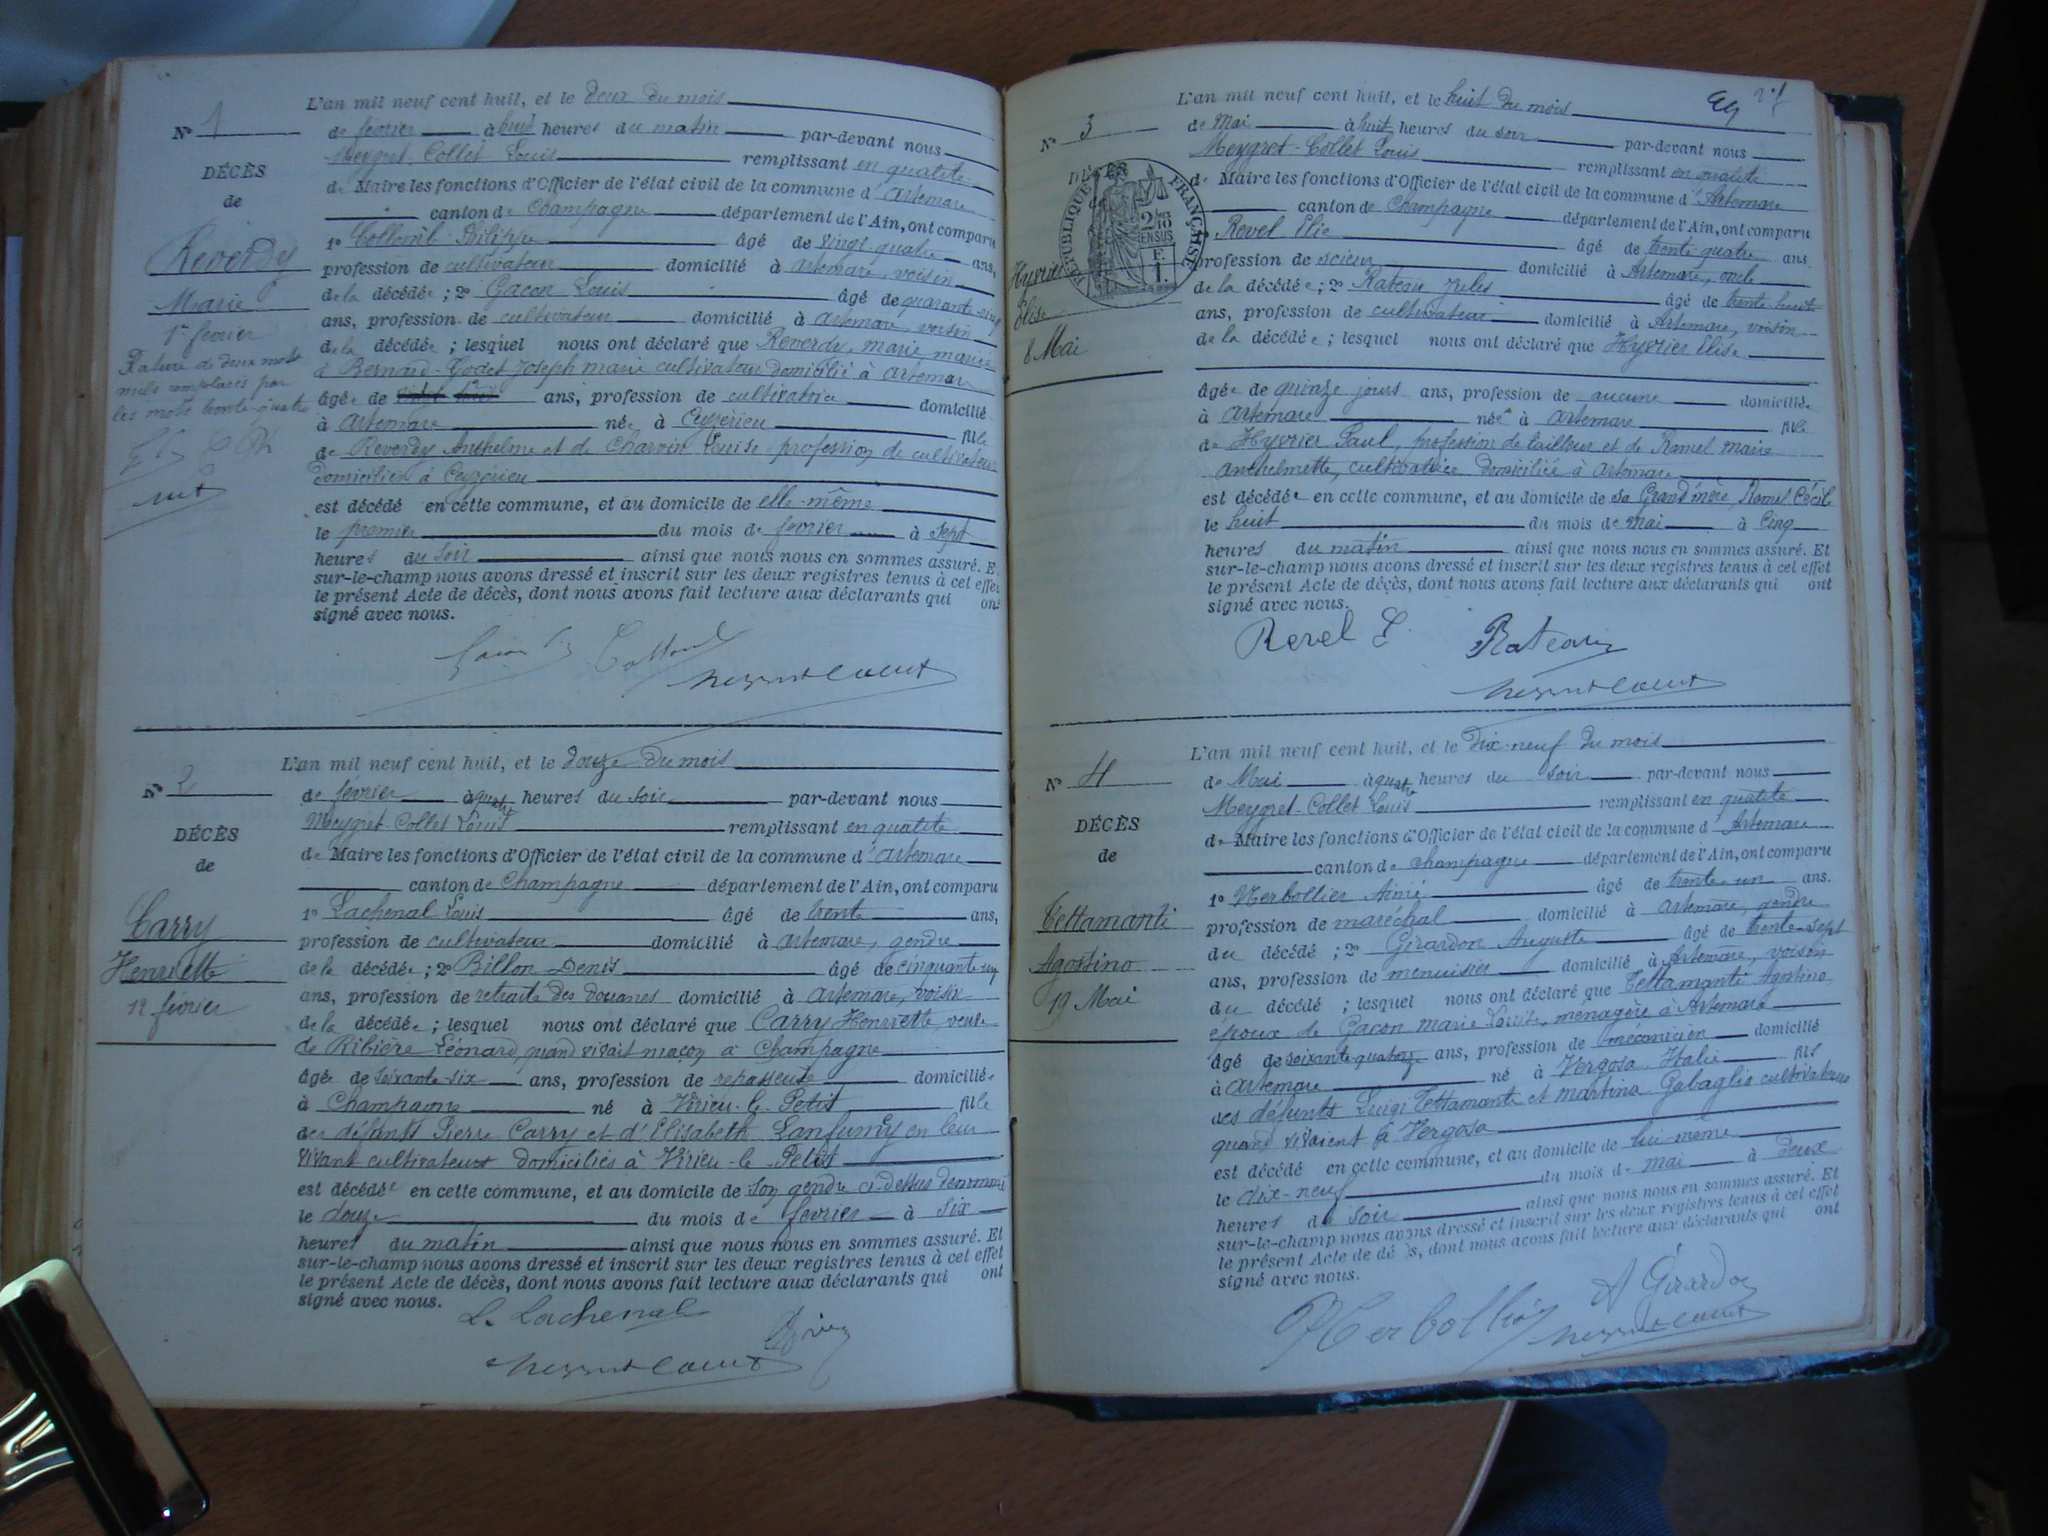 L'an mil neuf cent huit, et le deux du mois
N° 1
de février à huit heures du matin par-devant nous
Meygret-Collet Louis remplissant en qualité
DÉCÈS
de Maire les fonctions d'Officier de l'état civil de la commune d'Artemare
de
canton de Champagne département de l'Ain, ont comparu
Reverdy
1° Philippe âgé de vingt-quatre ans,
profession de cultivateur domicilié à artemare, voisin
Marie
de la décédée ; 2° Gacon Louis âgé de quarante-cinq
1er février
ans, profession de cultivateur domicilié à artemare voisin
de la décédée ; lesquel nous ont déclaré que Reverdy, marie mariée
Rature de deux mots
à Bernard-Godet Joseph marie cultivateur domicilié à artemare
nuls remplacés par
les mots trente-quatre
âgée de ans, profession de cultivatrice domicilié
à artemare née à Ceyzérieu fille
de Reverdy Anthelme et de Charvin Louise profession de cultivateurs
domiciliés à Ceyzérieu
est décédé en cette commune, et au domicile de elle-même
le premier du mois de février à sept
heures du soir ainsi que nous nous en sommes assuré. Et
sur-le-champ nous avons dressé et inscrit sur les deux registres tenus à cet effet
le présent Acte de décès, dont nous avons fait lecture aux déclarants qui ont
signé avec nous.
L'an mil neuf cent huit, et le douze du mois
N° 2
de février à quatre heures du soir par-devant nous
Meygret-Collet Louis remplissant en qualité
DÉCÈS
de Maire les fonctions d'Officier de l'état civil de la commune d'artemare
de
canton de Champagne département de l'Ain, ont comparu
Carry
1° Lachenal Louis âgé de trente ans,
profession de cultivateur domicilié à artemare, gendre
Henriette
de la décédée ; 2° Billon Denis âgé de cinquante-un
12 février
ans, profession de retraité des douanes domicilié à artemare, voisin
de la décédée ; lesquel nous ont déclaré que Carry Henriette veuve
de Ribière Léonard, quand vivait maçon à Champagne
âgée de soixante-six ans, profession de repasseuse domiciliée
à Champagne né à Virieu-le-Petit fille
des défunts Pierre Carry et d'Elisabeth Lanfumey en leur
vivant cultivateurs domiciliés à Virieu-le-Petit
est décédée en cette commune, et au domicile de son gendre ci-dessus dénommé
le douze du mois de février à six
heures du matin ainsi que nous nous en sommes assuré. Et
sur-le-champ nous avons dressé et inscrit sur les deux registres tenus à cet effet
le présent Acte de décès, dont nous avons fait lecture aux déclarants qui ont
signé avec nous.
L. Lachenal
L'an mil neuf cent huit, et le huit du mois
N° 3
de Mai à huit heures du soir par-devant nous
Meygret-Collet Louis remplissant en qualité
RÉPUBLIQUE FRANÇAISE
de Maire les fonctions d'Officier de l'état civil de la commune d'Artemare
canton de Champagne département de l'Ain, ont comparu
Revel Elie âgé de trente quatre ans
Hyvrier
profession de scieur domicilié à Artemare, oncle
Elise
de la décédée ; 2° Rateau Jules âgé de trente-huit
8 Mai
ans, profession de cultivateur domicilié à Artemare, voisin
de la décédée ; lesquel nous ont déclaré que Hyvrier Elise
âgée de quinze jours ans, profession de aucune domiciliée
à artemare née à artemare fille
de Hyvrier Paul, profession de tailleur et de Ramel marie
anthelmette, cultivatrice domiciliés à artemare
est décédée en cette commune, et au domicile de sa Grand'mère, Ramel Cécile
le huit du mois de mai à cinq
heures du matin ainsi que nous nous en sommes assuré. Et
sur-le-champ nous avons dressé et inscrit sur les deux registres tenus à cet effet
le présent Acte de décès, dont nous avons fait lecture aux déclarants qui ont
signé avec nous.
Revel E. Rateau
L'an mil neuf cent huit, et le dix-neuf du mois
N° 4
de Mai à quatre heures du soir par-devant nous
Meygret-Collet Louis remplissant en qualité
DÉCÈS
de Maire les fonctions d'Officier de l'état civil de la commune d'Artemare
de
canton de champagne département de l'Ain, ont comparu
1° Merbollier Aimé âgé de trente-un ans.
Tettamanti
profession de maréchal domicilié à artemare, gendre
du décédé ; 2° Girardon Auguste âgé de trente-sept
Agostino
ans, profession de menuisier domicilié à Artemare, voisin
19 Mai
du décédé ; lesquel nous ont déclaré que Tettamanti Agostino
époux de Gacon marie Louise, ménagère à Artemare
âgé de soixante quatorze ans, profession de mécanicien domicilié
à artemare né à Vergosa, Italie fils
des défunts Luigi Tettamanti et martina Gabaglio cultivateurs
quand vivaient à Vergosa
est décédé en cette commune, et au domicile de lui-même
le dix-neuf du mois de mai à deux
heures du soir ainsi que nous nous en sommes assuré. Et
sur-le-champ nous avons dressé et inscrit sur les deux registres tenus à cet effet
le présent Acte de dé s, dont nous avons fait lecture aux déclarants qui ont
signé avec nous.
Merbollier A Girardon